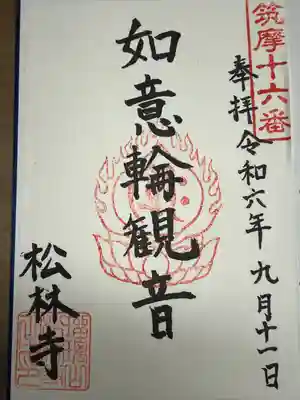 筑摩十六番
奉拝 令和六年 九月十一日
如意輪観音
松林寺